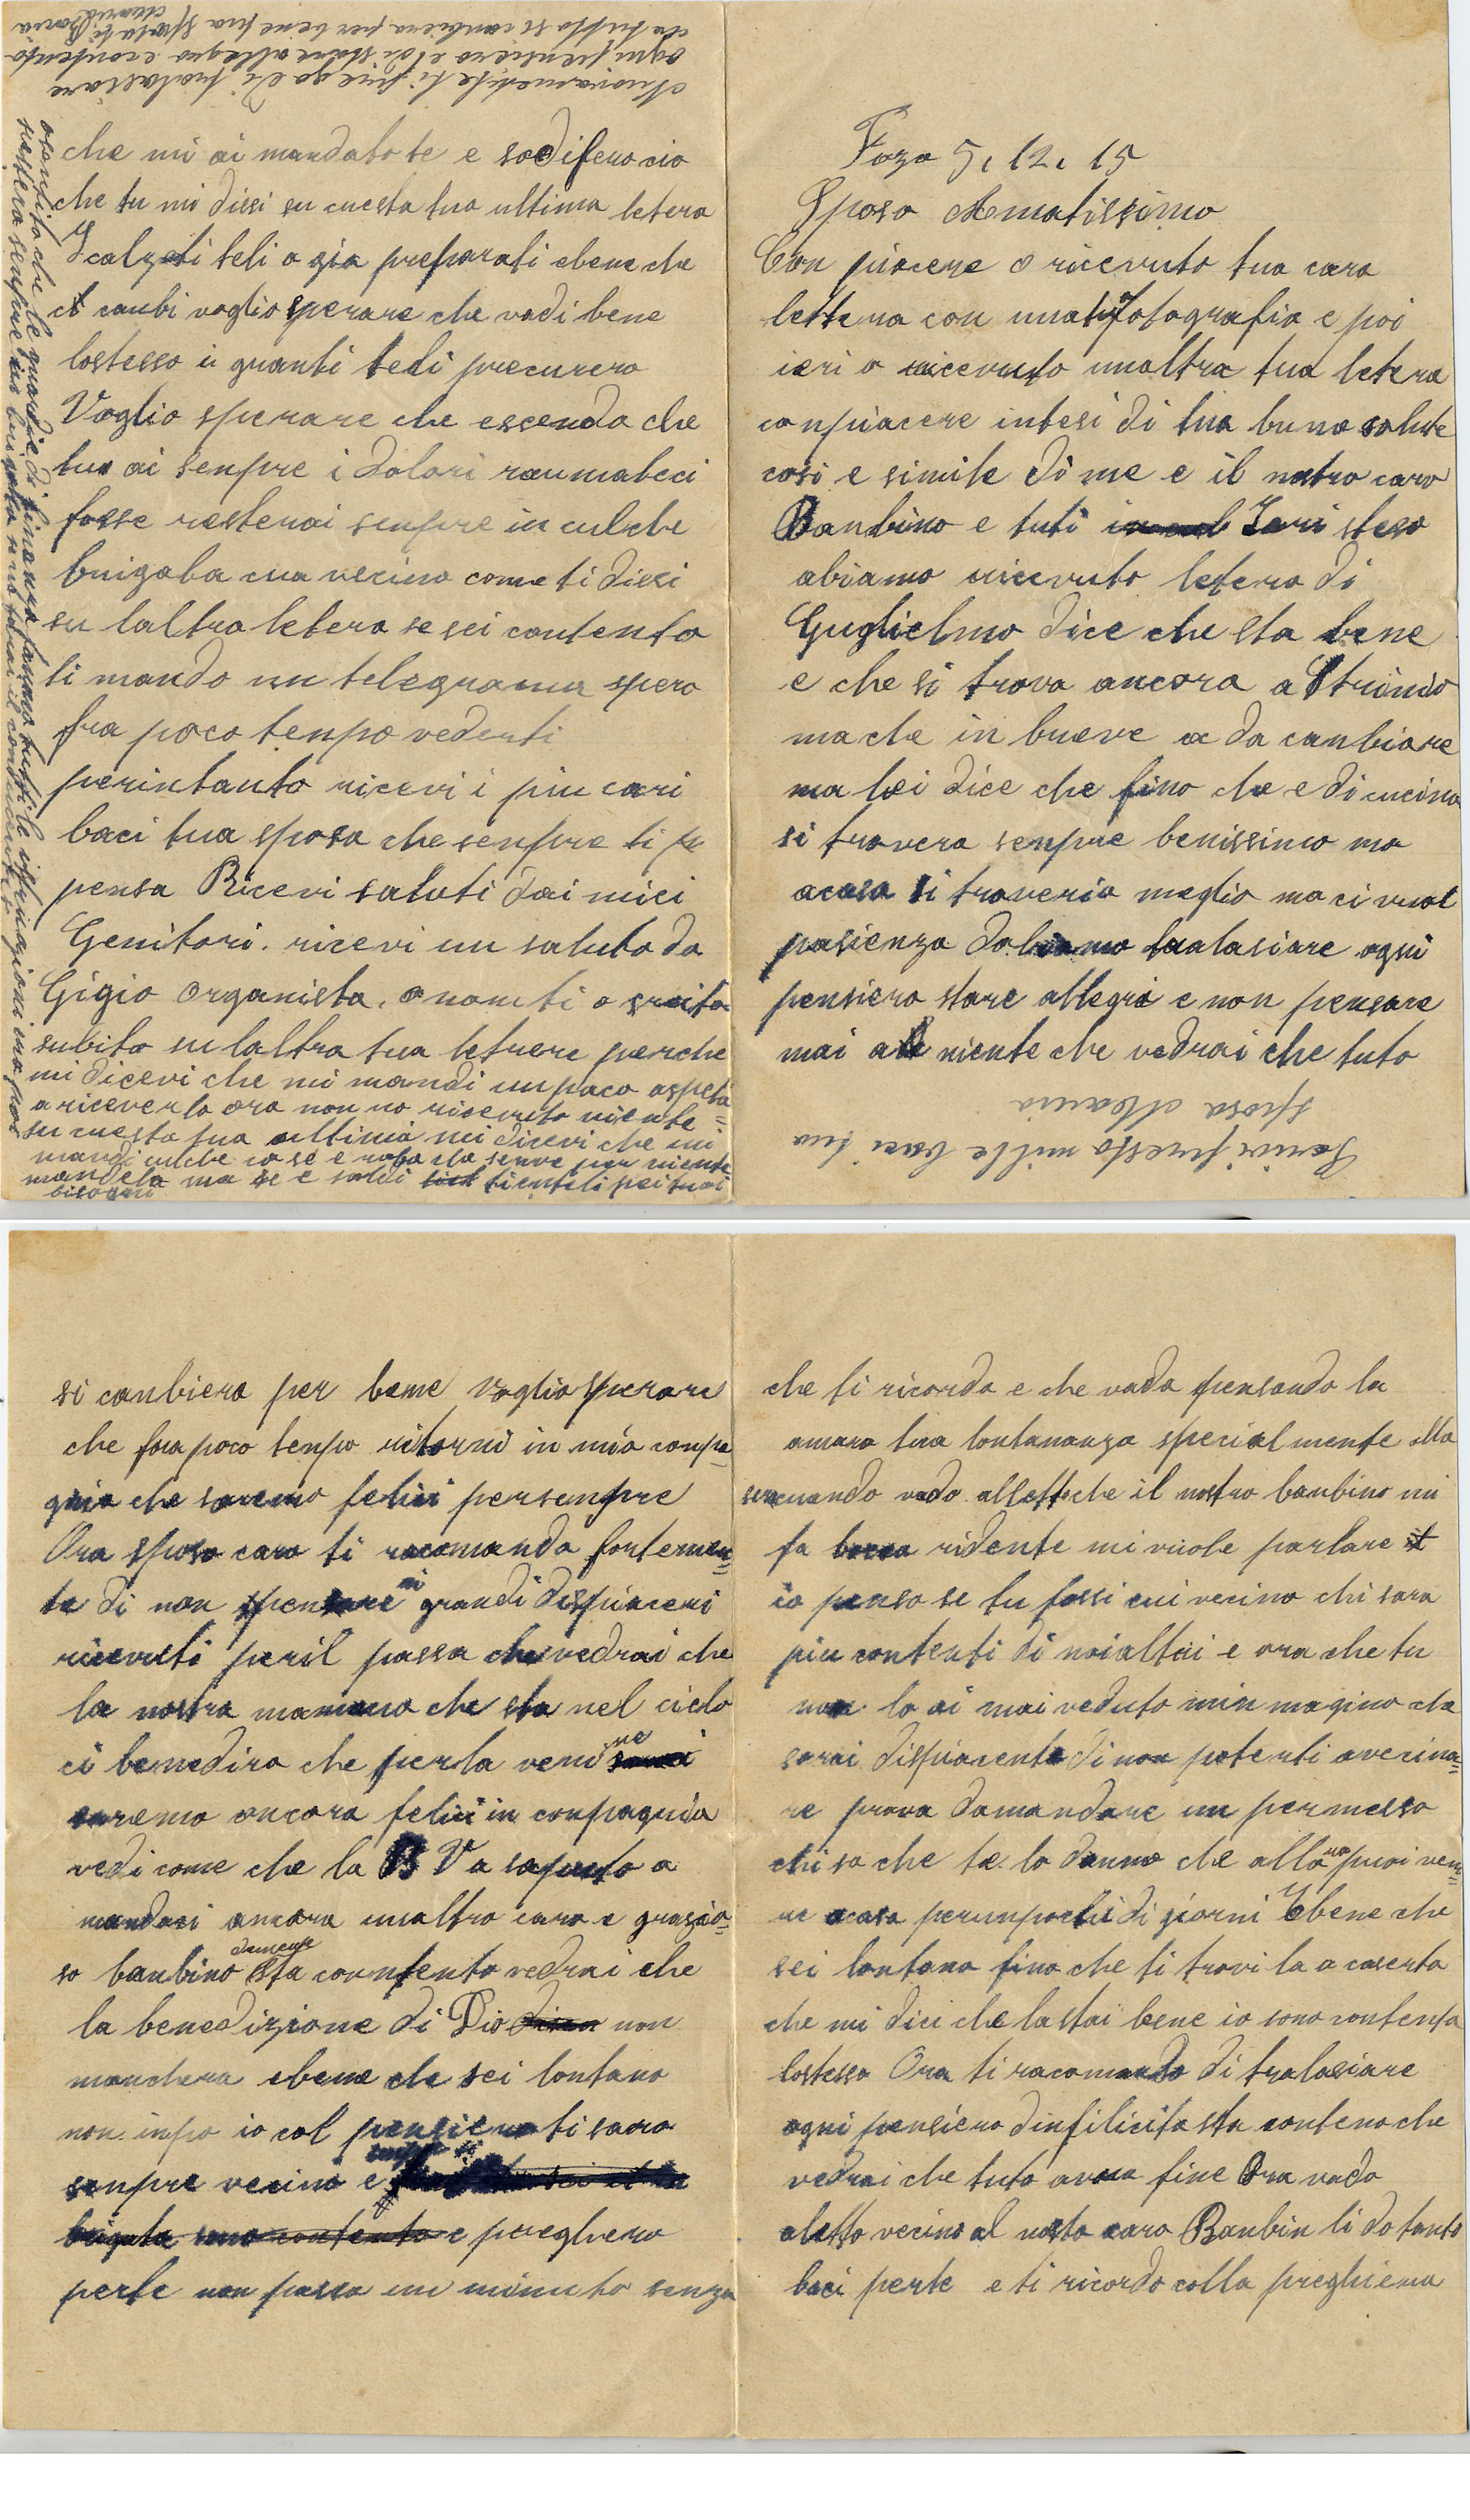 Foza 5. 12. 15
Sposo Amatissimo
Con piacere o ricevuto tua cara
lettera con una tua fotografia e poi
ieri o ricevuto unaltra tua letera
con piacere intesi di tua buna salute
cosi e simile di me e il nostro caro
Banbino e tuti Ieri steso
abiamo ricevuto letera di
Guglielmo dice che sta bene
e che si trova ancora a Strinio
ma che in breve a da canbiare
ma lei dice che fino che e di cucina
si trovera senpre benissimo ma
acasa si troveria meglio ma ci vuol
pasienza dobiamo tralasiare ogni
pensiero stare allegri e non pensare
mai a niente che vedrai che tuto
Scrivi presto mille baci tua
sposa Maria
si canbiera per bene voglio sperare
che fra poco tenpo ritorni in mia conpa=
gnia che saremo felici persenpre
Ora sposo caro ti racomando fortemen=
te di non pensare ai grandi dispiaceri
ricevuti peril passa che vedrai che
la nostra mamma che sta nel cielo
ci benedira che perla veni ne
saremo ancora felici in conpagnia
vedi come che la B V a saputo a
mandaci ancora unaltro caro e grazio=
so banbino sta contento vedrai che
la benedizione di Dio non
manchera ebene che sei lontano
non inpo io col pensiero ti saro
senpre vecino e
e preghero
perte non passa un minuto senza
che ti ricorda e che vada pensando la
amara tua lontananza specialmente alla
sera cuando vado alletto che il nostro banbino mi
fa bocca ridente mi vuole parlare
io penso se tu fossi cui vecino chi sara
piu contenti di noialtri e ora che tu
non lo ai mai veduto minmagino che
sarai dispiacente di non poterti avecina=
re prova damandare un permesso
chi sa che te lo danno che allora puoi veni=
re acasa perunpochi di giorni Ebene che
sei lontano fino che ti trovi la a caserta
che mi dici che la stai bene io sono contenta
lostesso Ora ti racomando di tralasiare
ogni pensiero dinfilicita sta conteno che
vedrai che tuto avra fine Ora vado
aletto vecino al nosto caro Banbin li do tanti
baci perte e ti ricordo colla preghiera
che mi ai mandato te e sodifero cio
che tu mi dissi su cuesta tua ultima letera
I calzeti teli o gia preparati ebene che
canbi voglio sperare che vadi bene
lostesso i guanti tedi precurero
Voglio sperare che escendo che
tua ai senpre i dolori raumateci
fosse resterai senpre in culche
brigata cua vecino come ti dissi
su laltra letera se sei contento
ti mando un telegrama spero
fra poco tenpo vederti
perintanto ricevi i piu cari
baci tua sposa che senpre ti
pensa Ricevi saluti dai miei
Genitori. ricevi un saluto da
Gigio Organista. o nonti o scrito
subito su laltra tua letrere perche
mi dicevi che mi mandi un paco aspeta=
a riceverlo ora non no ricevuto niente=
su cuesta tua ultima mi dicevi che mi
mandi culche cose e roba che serve per niente
mandela ma se e soldi tienteli pei tuoi
bisogni
osentito che le guardie di finanza fanno tutti le istruzioni ma fose
restera senpre in brigata se no tocai il
Nuovamente ti prego di tralasiare
ogni pensiero e di stare allegro e contento
che tutto si canbiera per bene tua sposa ti
Maria